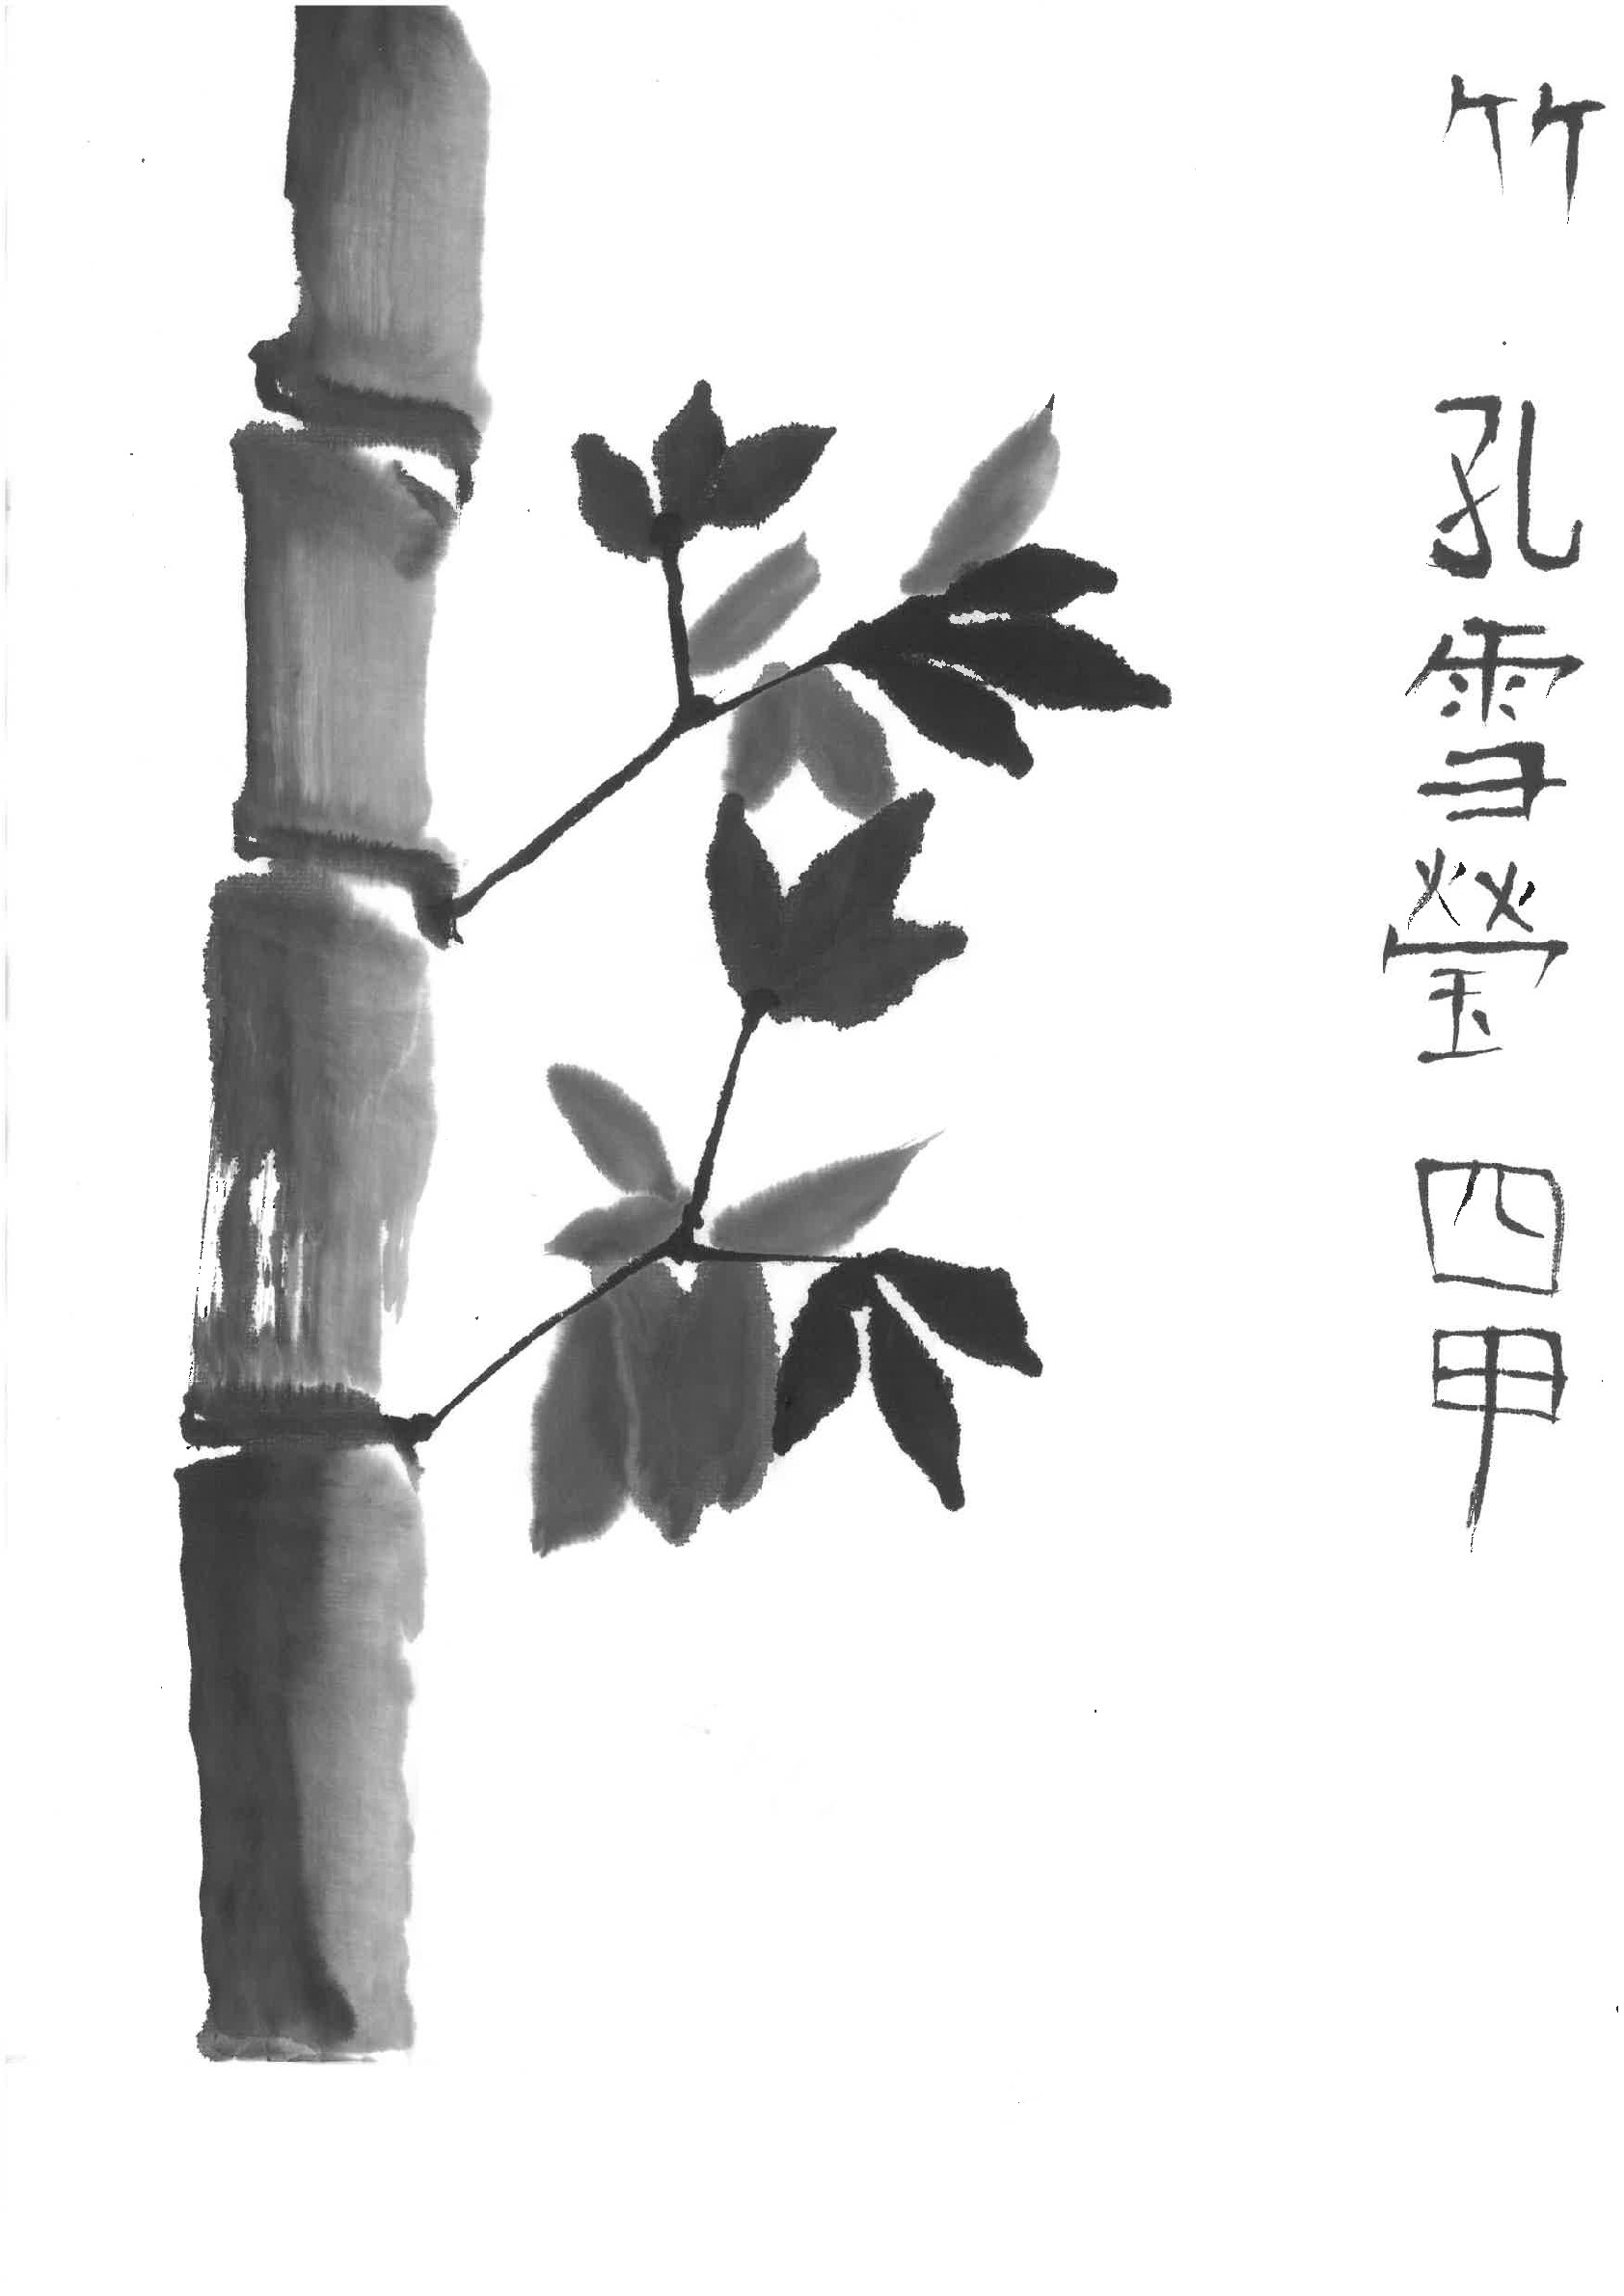 竹 孔雪瑩 四甲